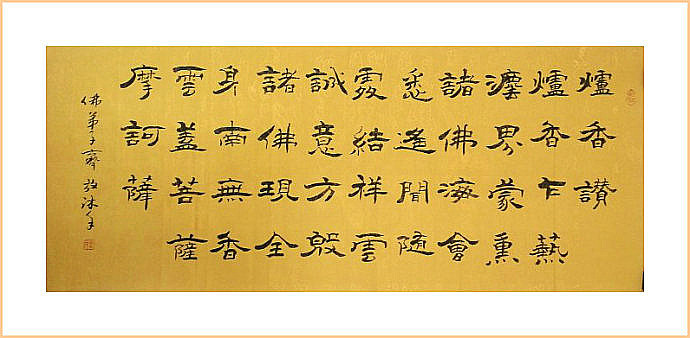 爐香讚
爐香乍爇
灋界蒙熏
諸佛海會
悉遙聞隨
處結祥雲
誠意方殷
諸佛現全
身南無香
雲蓋菩薩
摩訶薩
佛弟子齊放沐手